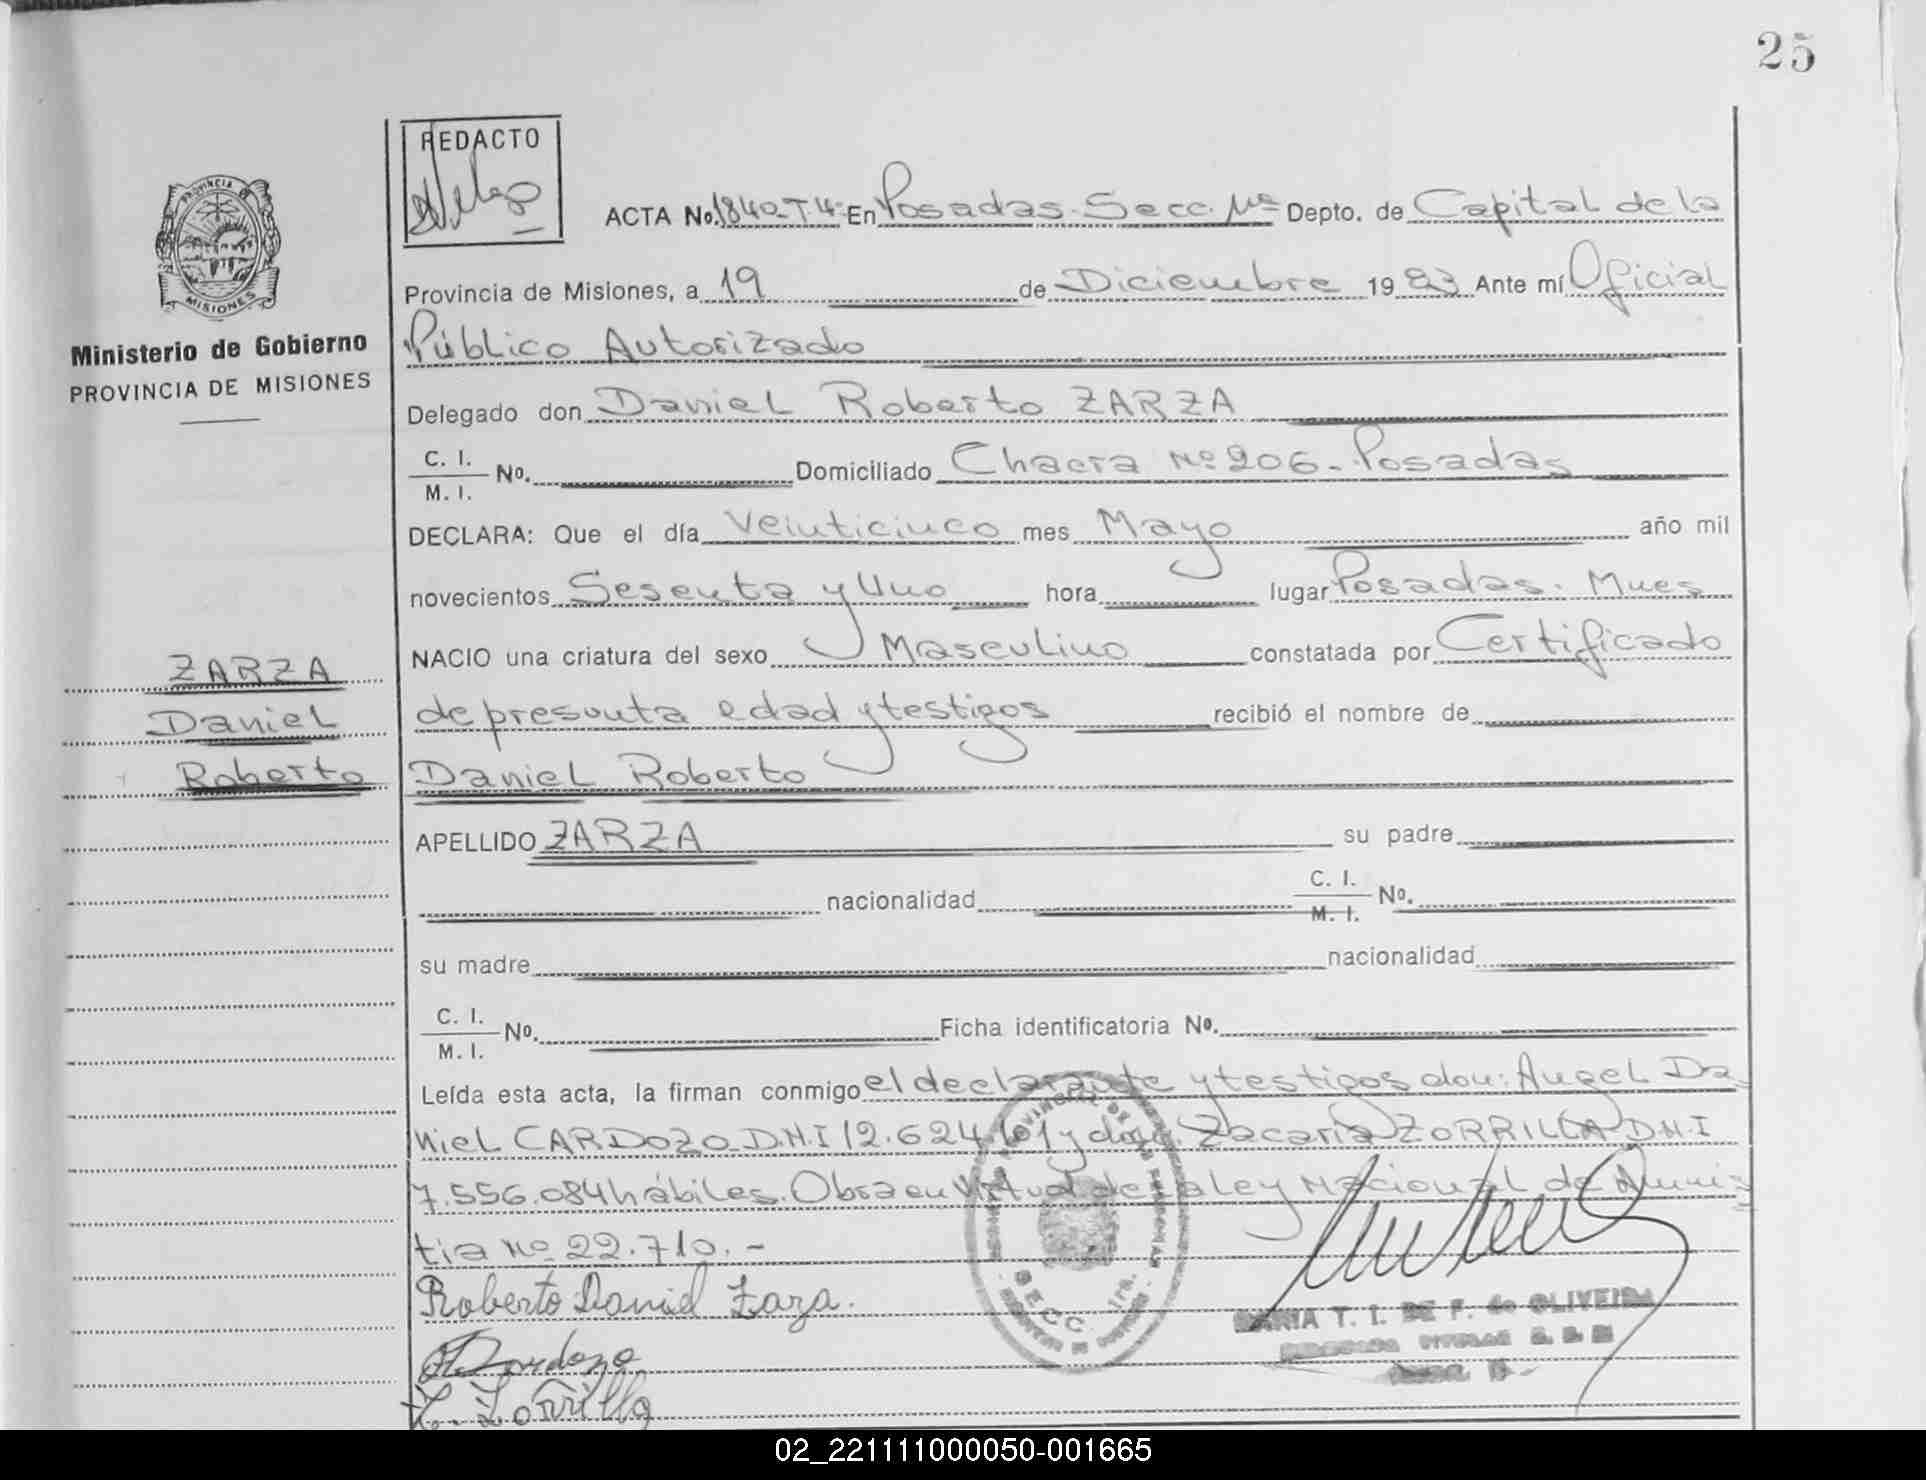 25
REDACTO
PROVINCIA
MISIONES
ACTA No. 1840-T4º En Posadas. Secc. Depto. de Capital de la
Provincia de Misiones, a 19 de Diciembre 1983 Ante mí Oficial
Ministerio de Gobierno
Público Autorizado
PROVINCIA DE MISIONES
Delegado don Daniel Roberto ZARZA
C. I.
M. I. No. Domiciliado Chacra Nº 206 - Posadas
DECLARA: Que el día Veinticinco mes Mayo año mil
novecientos Sesenta y Uno hora lugar Posadas. Mnes
NACIO una criatura del sexo Masculino constatada por Certificado
ZARZA
Daniel
Roberto
de presunta edad y testigos recibió el nombre de
Daniel Roberto
APELLIDO ZARZA su padre
nacionalidad C. I.
M. I. No.
su madre nacionalidad
C. I.
M. I. No. Ficha identificatoria No.
Leída esta acta, la firman conmigo el declarante y testigos don: Angel Da-
niel CARDOZO D.N.I 12.624. y Zacaria ZORRILLA D.N.I
7.556.084 hábiles. Obra en Virtud de la ley Nacional de Amnis-
tia Nº 22.710.-
Roberto Daniel Zarza.
Cardozo
Z. Zorrilla
SECC. 1ra.
MARIA T. I. DE F. de OLIVEIRA
02_221111000050-001665